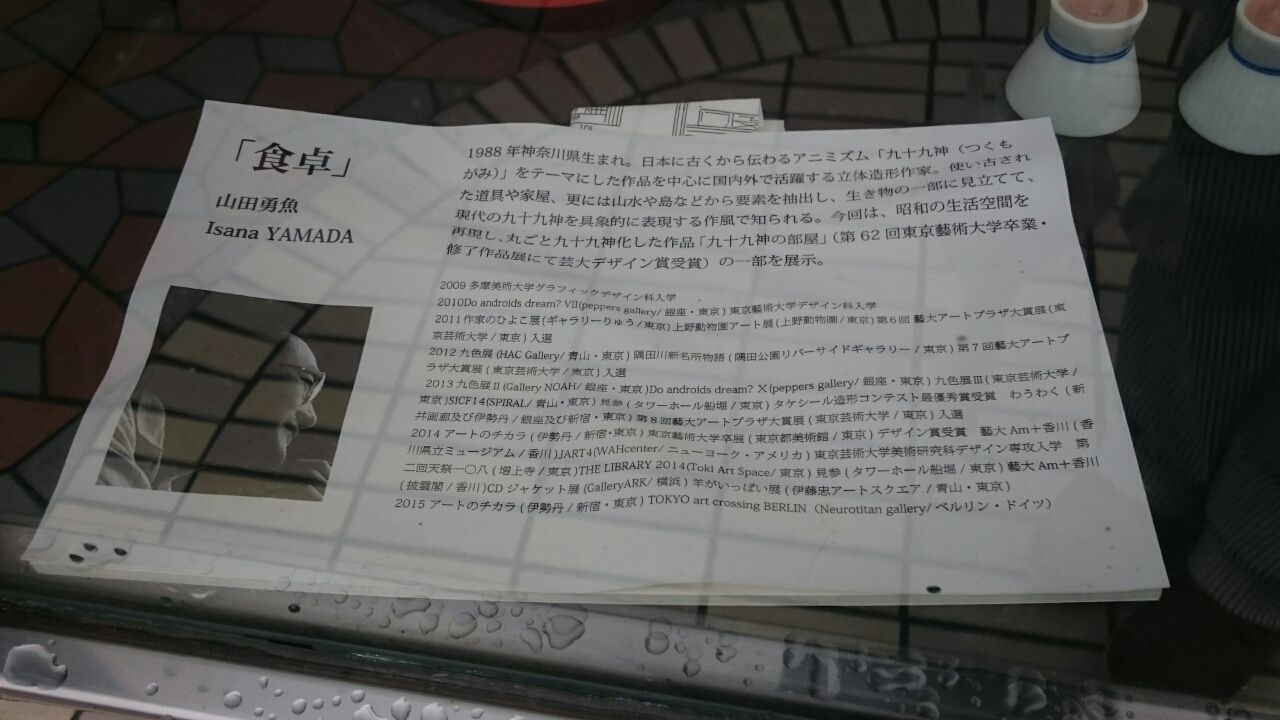 「食卓」
山田勇魚
Isana YAMADA
1988年神奈川県生まれ。日本に古くから伝わるアニミズム「九十九神（つくも
がみ）」をテーマにした作品を中心に国内外で活躍する立体造形作家。使い古され
た道具や家屋、更には山水や島などから要素を抽出し、生き物の一部に見立てて、
現代の九十九神を具象的に表現する作風で知られる。今回は、昭和の生活空間を
再現し、丸ごと九十九神化した作品「九十九神の部屋」（第62回東京藝術大学卒業・
修了作品展にて芸大デザイン賞受賞）の一部を展示。
2009 多摩美術大学グラフィックデザイン科入学
2010Do androids dream? Ⅶ(peppers gallery/ 銀座・東京) 東京藝術大学デザイン科入学
2011 作家のひよこ展(ギャラリーりゅう/東京)上野動物園アート展(上野動物園/東京)第6回 藝大アートプラザ大賞展(東
京芸術大学 / 東京) 入選
2012 九色展 (HAC Gallery/ 青山・東京) 隅田川新名所物語 ( 隅田公園リバーサイドギャラリー / 東京) 第7回藝大アートプ
ラザ大賞展 ( 東京芸術大学 / 東京) 入選
2013 九色展Ⅱ(Gallery NOAH/ 銀座・東京)Do androids dream? Ⅹ(peppers gallery/ 銀座・東京) 九色展Ⅲ( 東京芸術大学 /
東京)SICF14(SPIRAL/ 青山・東京) 見参 ( タワーホール船堀 / 東京) タケシール造形コンテスト最優秀賞受賞　わうわく ( 新
井画廊及び伊勢丹 / 銀座及び新宿・東京) 第8回藝大アートプラザ大賞展 ( 東京芸術大学 / 東京) 入選
2014 アートのチカラ ( 伊勢丹 / 新宿・東京) 東京藝術大学卒展 ( 東京都美術館 / 東京) デザイン賞受賞　藝大 Am＋香川 ( 香
川県立ミュージアム / 香川)JART4(WAHcenter/ ニューヨーク・アメリカ) 東京芸術大学美術研究科デザイン専攻入学　第
二回天祭一〇八 ( 増上寺 / 東京)THE LIBRARY 2014(Toki Art Space/ 東京) 見参 ( タワーホール船堀 / 東京) 藝大 Am＋香川
( 披雲閣 / 香川)CD ジャケット展 (GalleryARK/ 横浜) 羊がいっぱい展 ( 伊藤忠アートスクエア / 青山・東京)
2015 アートのチカラ ( 伊勢丹 / 新宿・東京) TOKYO art crossing BERLIN（Neurotitan gallery/ ベルリン・ドイツ）